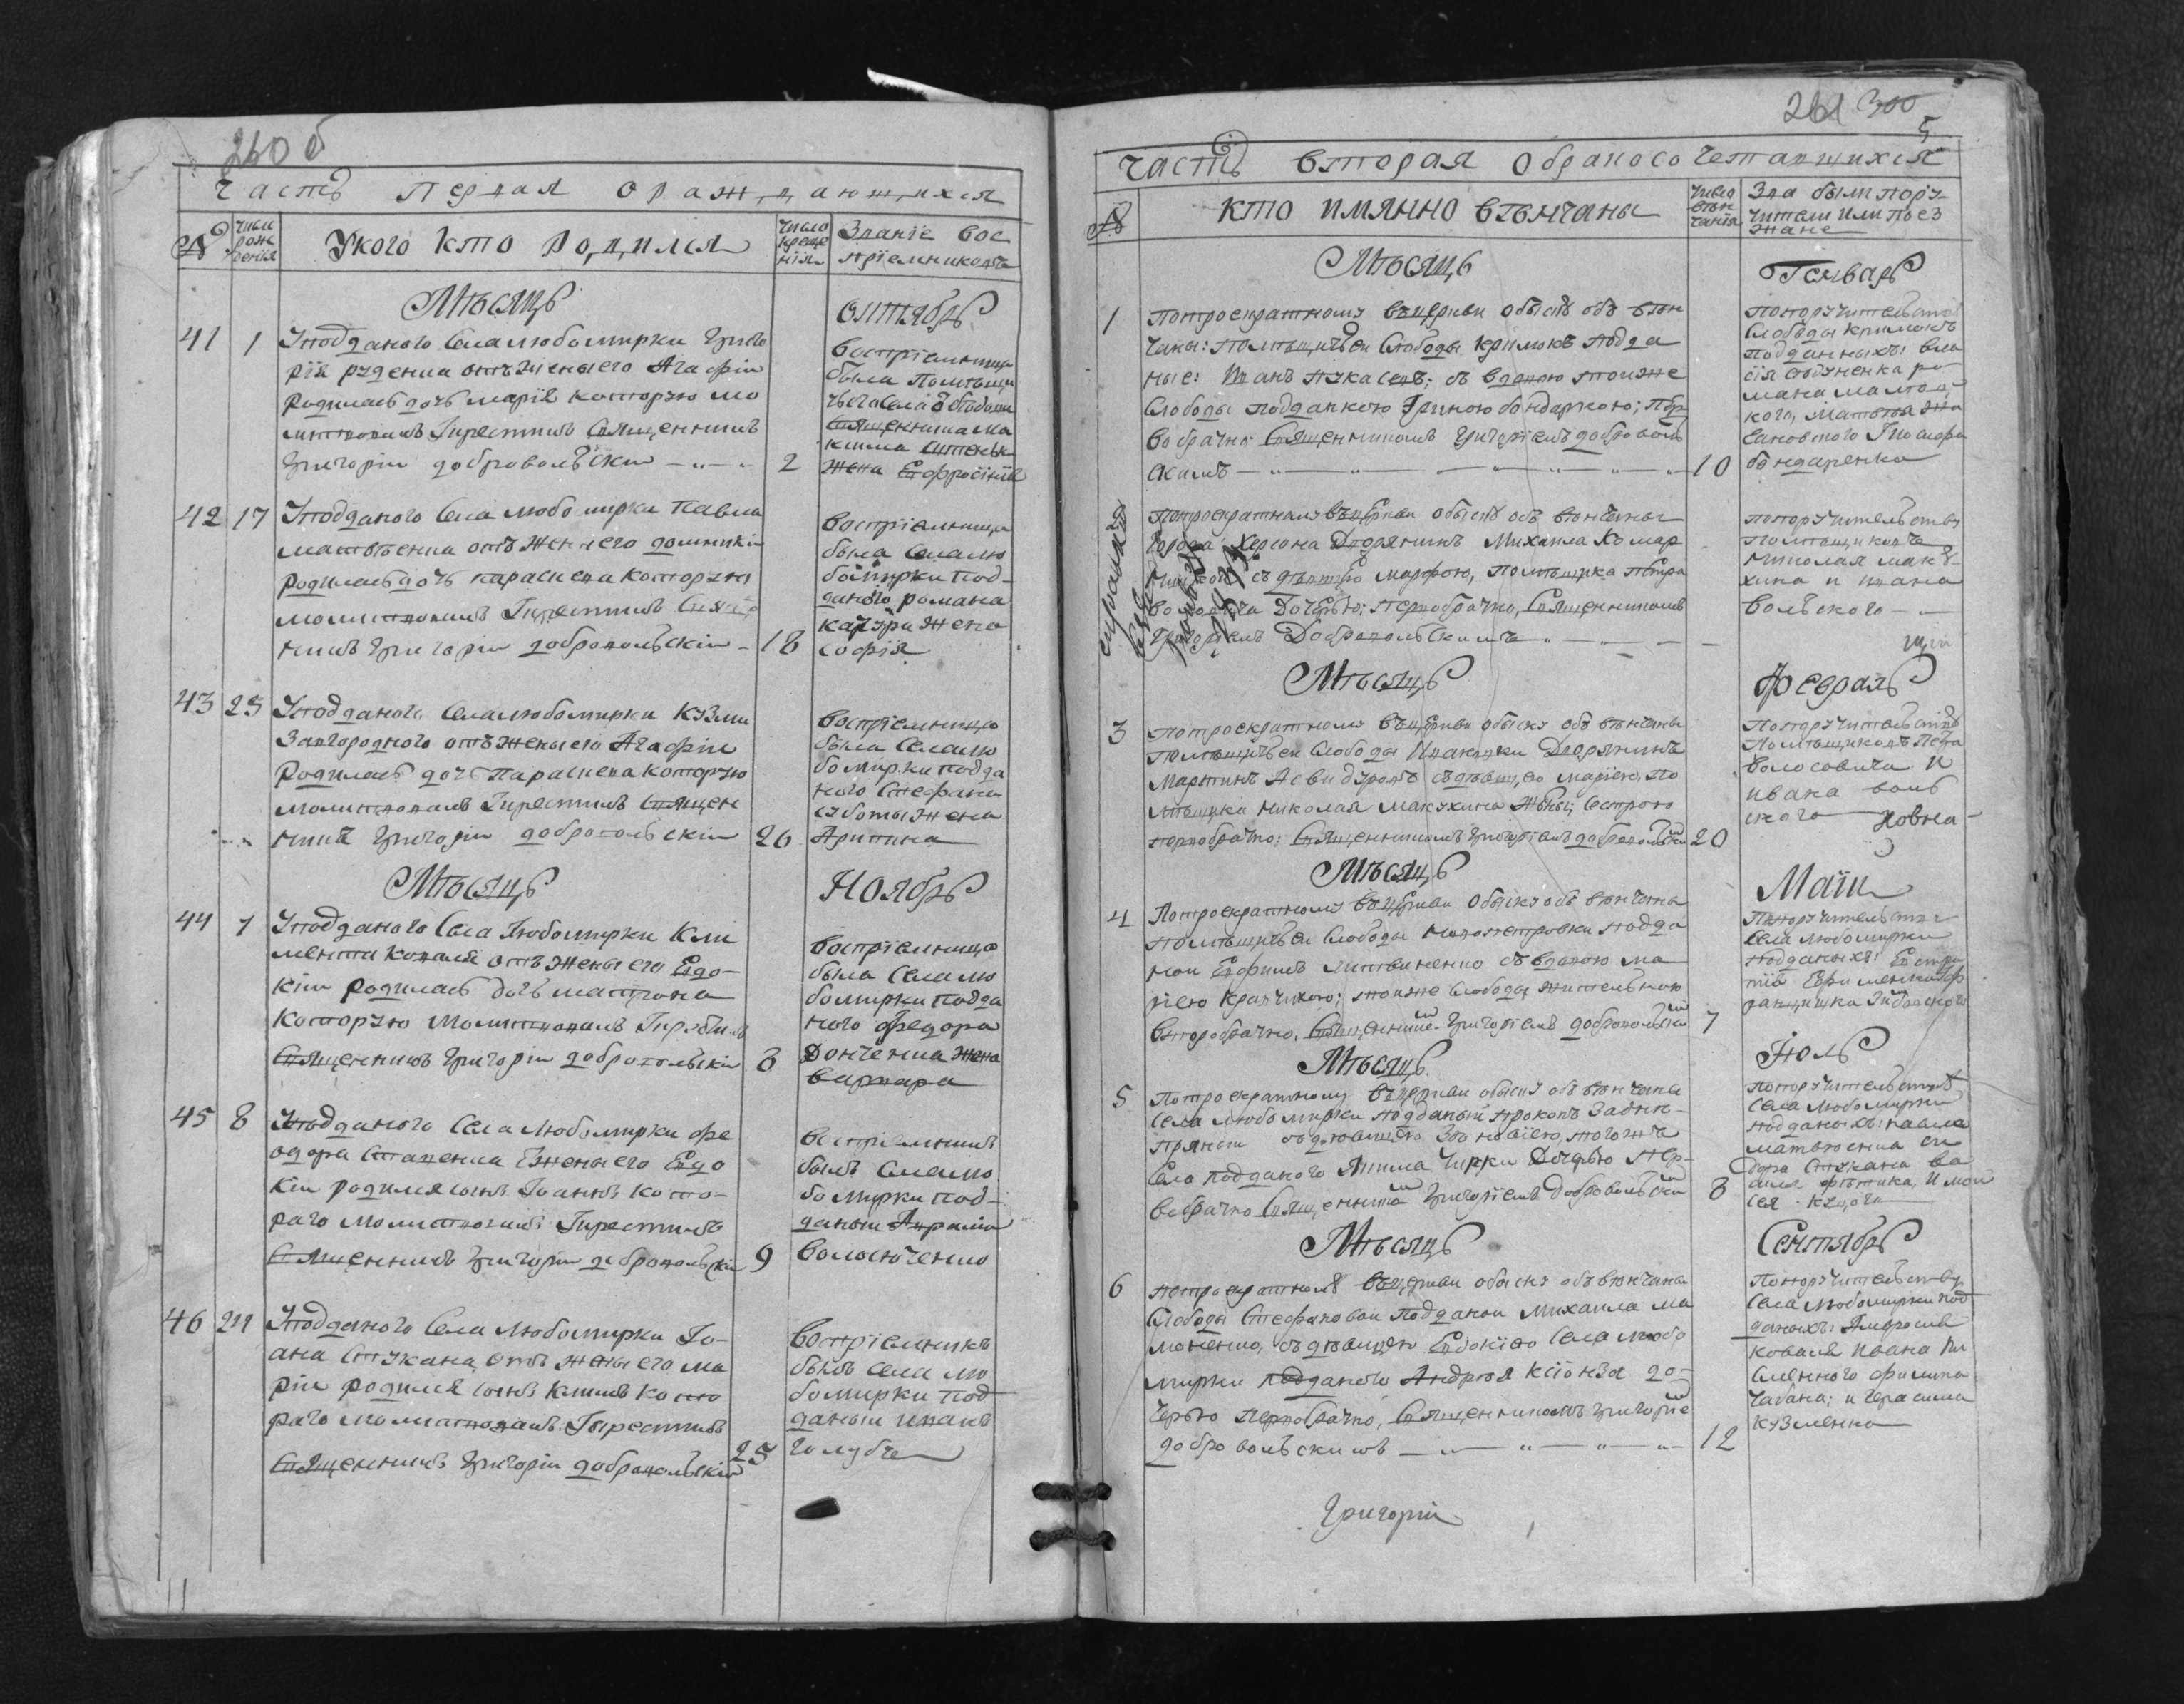 260 об
Часть первая о раждающихся
№
Число рождения
У кого кто родился
Число крещения
Звание восприемниковъ
Мѣсяцъ Октябрь
41 1
Уподданого села Любомирки Григо
рія руденка отъ жены его Агафіи
родилась дочь Марія которую мо
литвовалъ Iкрестилъ Священникъ
Григорій добровольскій 2
Воспріемница
была Помѣщи
Священника Ма
ксима
жена Ефросінія
42 17
Уподданого Села Любомирки Павла
матвѣенка отъ жены его домникіи
родилась дочь параскева которую
молитвовалъ Iкрестилъ Священ
никъ Григорій добровольскій 18
Воспріемница
была Села Лю
бомирки под-
даного романа
качури жена
софія
43 25
Уподданого Села Любомирки Кузмы
Загородного отъ жены его Агафіи
родилась дочь Параскева которую
молитвовалъ Iкрестилъ Священ
никъ Григорій добровольскій 26
Воспріемница
была Села Лю
бомирки подда
ного Стефана
суботы жена
Ирина
Мѣсяцъ Ноябрь
44 7
Уподданого Села Любомирки Кли
мента коваля отъ жены его Евдо-
кіи родилась дочь матрона
которую Молитвовалъ Iкрестилъ
Священникъ Григорій добровольскій 8
Воспріемница
была Села Лю
бомирки подда
ного Федора
Донченка жена
варвара
45 8
Уподданого Села Любомирки Фе
одора Степенка Iжены его Евдо
кіи родился сынъ Iоаннъ кото-
раго Молитвовалъ Iкрестилъ
Священникъ Григорій добровольскій 9
Воспріемникъ
былъ Села Лю
бомирки под-
даный
Волошченко
46 24
Уподданого Села Любомирки Iо-
ана Стукана отъ жены его ма
ріи родился сынъ климъ кото
раго молитвовалъ Iкрестилъ
Священникъ Григорій добровольскій 25
Воспріемникъ
былъ Села Лю
бомирки под
даный иванъ
голубъ
261 300
5
Часть вторая о бракосочетавшихся
№
кто имянно вѣнчаны
Число вѣнчанія
Кто были пору-
чители или поез
жане
Мѣсяцъ Генварь
1
Потроекратному въцеркви обыску обвѣн
чаны: помѣщичьей Слободы Кримокъ подда
ные: Иванъ съ вдовою тоижъ
Слободы подданкою Iриною бондаркою; пер
вобрачно Священникомъ Григоріемъ доброволь
скимъ 10
попоручительству
Слободы Кримокъ
подданныхъ: вла
сія ро
мана
кого, Матвѣя
Iосифа
бондаренка
Потроекратному въцеркви обыску обвѣнчаны
города Херсона Дворянинъ Михаила Комар
съ дѣвицею Марфою, помѣщика Петра
дочерью; первобрачно, Священникомъ
Григоріемъ Добровольскимъ
попоручительству
помѣщиковъ
Николая маку-
хина и ивана
вольского
Мѣсяцъ Февраль
3
Потроекратному въцеркви обыску обвѣнчаны
помѣщичьей Слободы Ивановки Дворянинъ
Мартинъ съ дѣвицею Маріею, по
мѣщика Николая Макухина жены; сестрою
первобрачно; Священникомъ Григоріемъ добровольскимъ 20
Попоручительству
Помѣщиковъ Петра
Волосовича и
ивана воль
ского
Мѣсяцъ Маій
4
Потроекратному въцеркви обыску обвѣнчаны
помѣщичьей Слободы Новопетровки подда
ной Ефимъ литвиненко съ вдовою ма
ріею Кравчихою; тоижъ Слободы жителькою
второбрачно, Священникомъ Григоріемъ добровольскимъ 7
Попоручительству
Села Любомирки
подданыхъ: Евстра
тія Ефименка
Мѣсяцъ Iюль
5
Потроекратному въцеркви обыску обвѣнчаны
Села Любомирки подданый прокопъ Задне-
пряный съ дѣвицею Зѣновіею, того жъ
Села подданого Якима Чирки Дочерью пер-
вобрачно Священникомъ Григоріемъ Добровольскимъ 8
попоручительству
Села Любомирки
подданыхъ: павла
матвѣенка си
дора Стукана ва
силя и мои
сея
Мѣсяцъ Сентябрь
6
потроекратному въцеркви обыску обвѣнчаны
Слободы Стефановой подданой Михаила Ма
моненко, съ дѣвицею Евдокіею Села Любо
мирки подданого Андрѣя до-
черью первобрачно, Священникомъ Григоріе
добровольскимъ 12
Попоручительству
Села Любомирки под
даныхъ: Амвросія
Коваля ивана Пи
сменного филипа
Чабана; и герасима
кузменка
Григорій